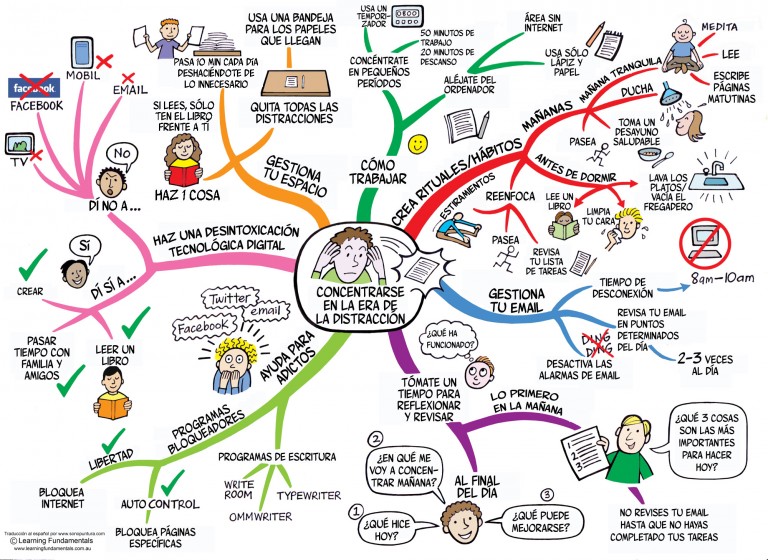 CONCENTRARSE
EN LA ERA DE
LA DISTRACCIÓN
GESTIONA
TU ESPACIO
USA UNA BANDEJA
PARA LOS PAPELES
QUE LLEGAN
PASA 10 MIN CADA DÍA
DESHACIÉNDOTE DE
LO INNECESARIO
QUITA TODAS LAS
DISTRACCIONES
SI LEES, SÓLO
TEN EL LIBRO
FRENTE A TÍ
HAZ 1 COSA
CÓMO
TRABAJAR
USA UN
TEMPORI-
ZADOR
50 MINUTOS DE
TRABAJO
20 MINUTOS DE
DESCANSO
CONCÉNTRATE
EN PEQUEÑOS
PERÍODOS
ÁREA SIN
INTERNET
USA SÓLO
LÁPIZ Y
PAPEL
ALÉJATE DEL
ORDENADOR
CREA RITUALES/HÁBITOS
MAÑANAS
MAÑANA TRANQUILA
MEDITA
LEE
ESCRIBE
PÁGINAS
MATUTINAS
DUCHA
TOMA UN
DESAYUNO
SALUDABLE
PASEA
ANTES DE DORMIR
LEE UN
LIBRO
LIMPIA
TU CARA
LAVA LOS
PLATOS/
VACÍA EL
FREGADERO
ESTIRAMIENTOS
REENFOCA
PASEA
REVISA
TU LISTA
DE TAREAS
GESTIONA
TU EMAIL
TIEMPO DE
DESCONEXIÓN
8am-10am
REVISA TU EMAIL
EN PUNTOS
DETERMINADOS
DEL DÍA
2-3 VECES
AL DÍA
DING
DING
DESACTIVA LAS
ALARMAS DE EMAIL
¿QUÉ HA
FUNCIONADO?
TÓMATE UN
TIEMPO PARA
REFLEXIONAR
Y REVISAR
LO PRIMERO
EN LA MAÑANA
1
2
3
¿QUÉ 3 COSAS
SON LAS MÁS
IMPORTANTES
PARA HACER
HOY?
NO REVISES TU EMAIL
HASTA QUE NO HAYAS
COMPLETADO TUS TAREAS
AL FINAL
DEL DÍA
1
¿QUÉ HICE
HOY?
2
¿EN QUÉ ME
VOY A CONCEN-
TRAR MAÑANA?
3
¿QUÉ PUEDE
MEJORARSE?
AYUDA PARA
ADICTOS
Twitter
email
Facebook
PROGRAMAS
BLOQUEADORES
LIBERTAD
BLOQUEA
INTERNET
AUTO CONTROL
BLOQUEA PÁGINAS
ESPECÍFICAS
PROGRAMAS DE ESCRITURA
WRITE
ROOM
OMMWRITER
TYPEWRITER
HAZ UNA DESINTOXICACIÓN
TECNOLÓGICA DIGITAL
DÍ NO A...
No
TV
facebook
FACEBOOK
MOBIL
EMAIL
DÍ SÍ A...
Sí
CREAR
PASAR
TIEMPO CON
FAMILIA Y
AMIGOS
LEER UN
LIBRO
Traducción al español por www.sonopuntura.com
© Learning Fundamentals
www.learningfundamentals.com.au